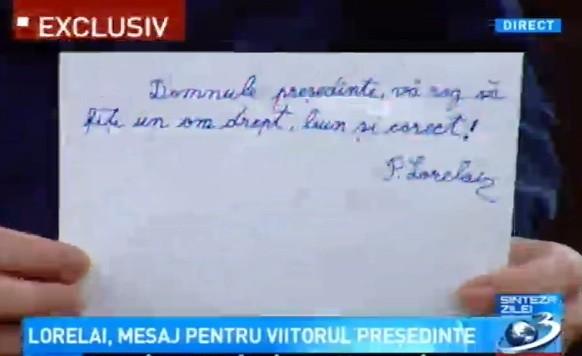 EXCLUSIV
DIRECT
Domnule președinte, vă rog să
fiți un om drept, bun și corect!
P. Lorelai
LORELAI, MESAJ PENTRU VIITORUL PREȘEDINTE
SINTEZA
ZILEI
3